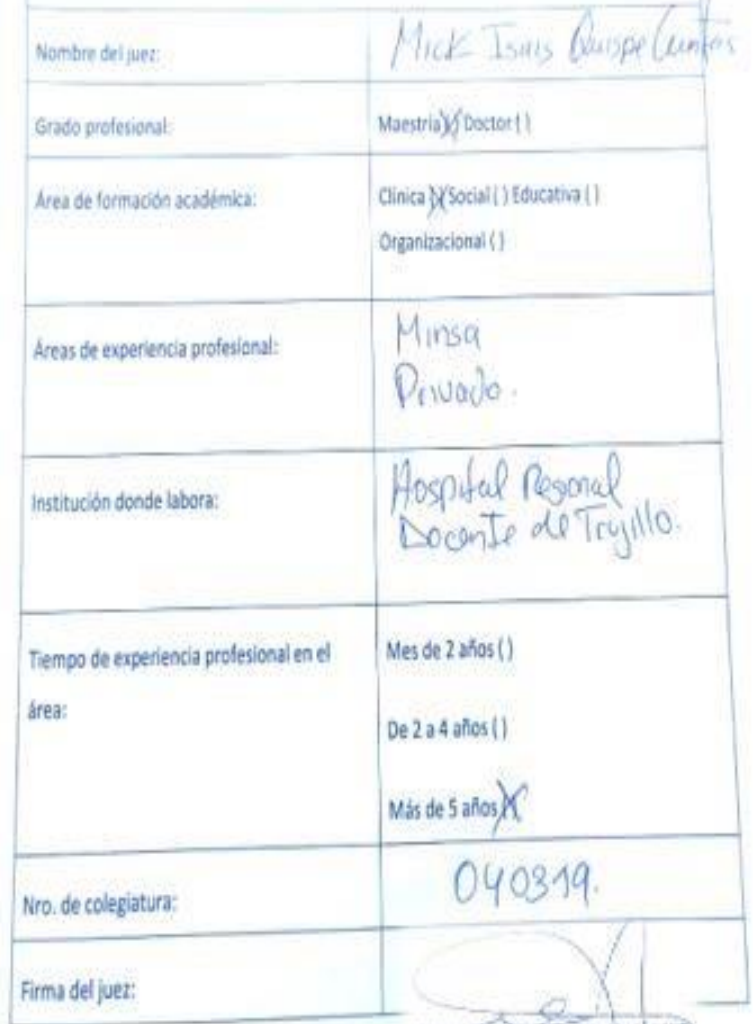 Nombre del juez: Mick Isais Quispe
Grado profesional: Maestria (X) Doctor ( )
Área de formación académica: Clinica (X) Social ( ) Educativa ( )
Organizacional ( )
Áreas de experiencia profesional: Minsa
Privado.
Institución donde labora: Hospital Regional
Docente de Trujillo.
Tiempo de experiencia profesional en el
área:
Mes de 2 años ( )
De 2 a 4 años ( )
Más de 5 años (X)
Nro. de colegiatura: 040319.
Firma del juez: